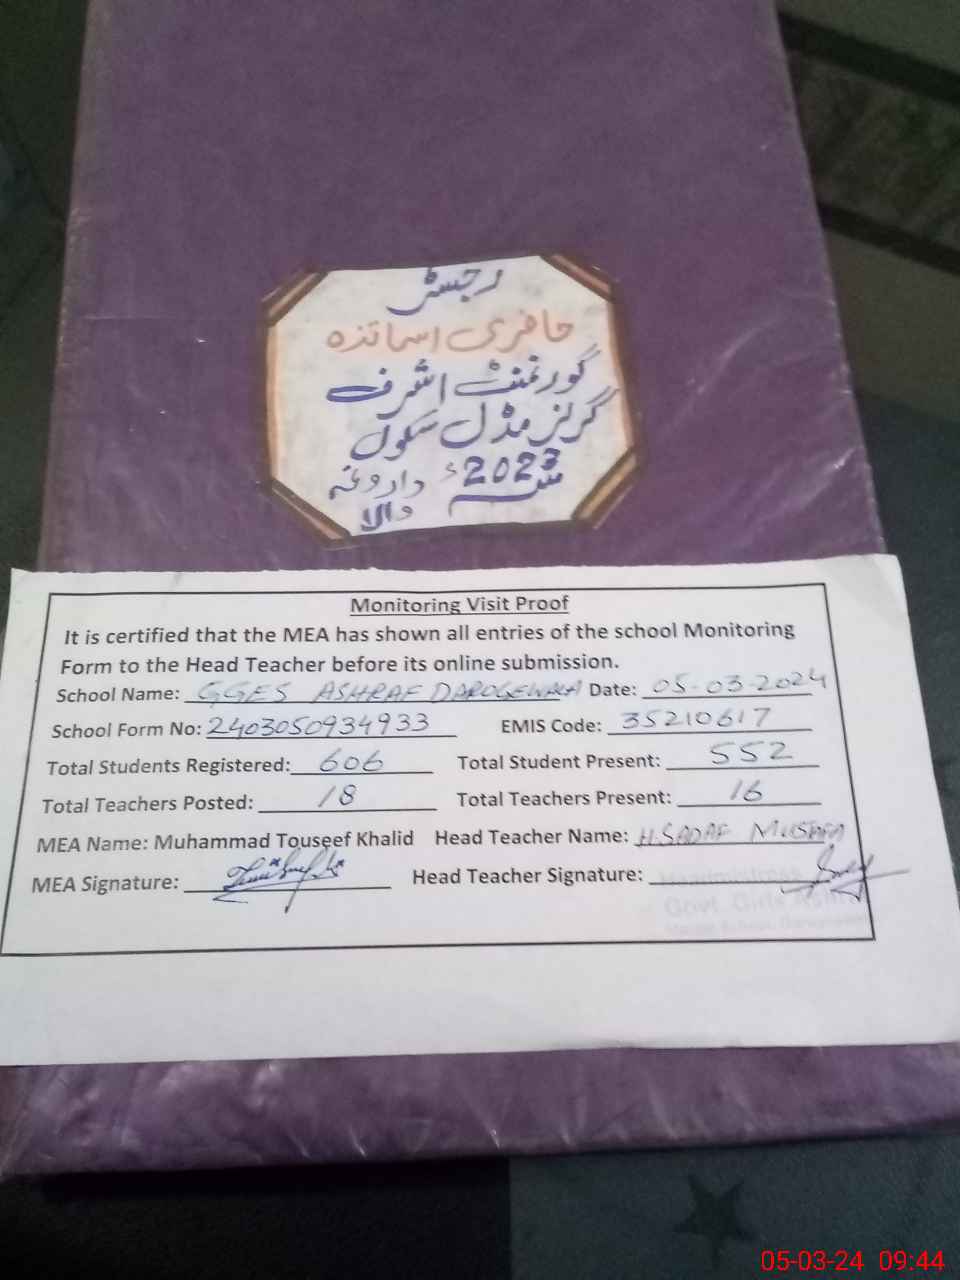 رجسٹر
حاضری اساتذہ
گورنمنٹ اشرف
گرلز مڈل سکول
2023ء داروغہ
والا
Monitoring Visit Proof
It is certified that the MEA has shown all entries of the school Monitoring
Form to the Head Teacher before its online submission.
School Name: GGES ASHRAF DAROGEWALA Date: 05-03-2024
School Form No: 2403050934933 EMIS Code: 35210617
Total Students Registered: 606 Total Student Present: 552
Total Teachers Posted: 18 Total Teachers Present: 16
MEA Name: Muhammad Touseef Khalid Head Teacher Name: H.SADAF MUSTAFA
MEA Signature: Head Teacher Signature:
Headmistress
Govt. Girls Ashraf
05-03-24 09:44